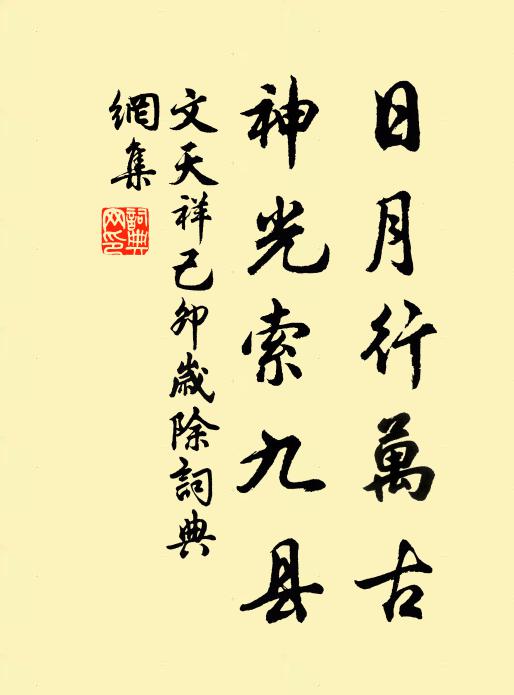 日月行萬古
神光索九县
文天祥己卯歲除詞典
網集
詞典
网印